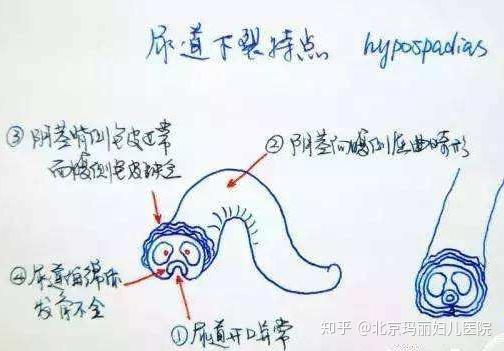 尿道下裂特点 hypospadias
③ 阴茎背侧包皮正常
而腹侧包皮缺乏
② 阴茎向腹侧屈曲畸形
④ 尿道海绵体
发育不全
① 尿道开口异常
知乎 @北京玛丽妇儿医院